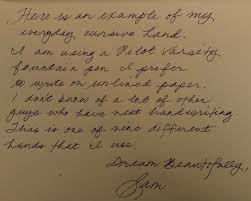 Here is an example of my
everyday cursive hand.
I am using a Pilot Varsity
fountain pen I prefer
to write on unlined paper.
I don't know of a lot of other
guys who have neat handwriting
This is one of nine different
hands that I use.
Dream Beautifully,
Sam